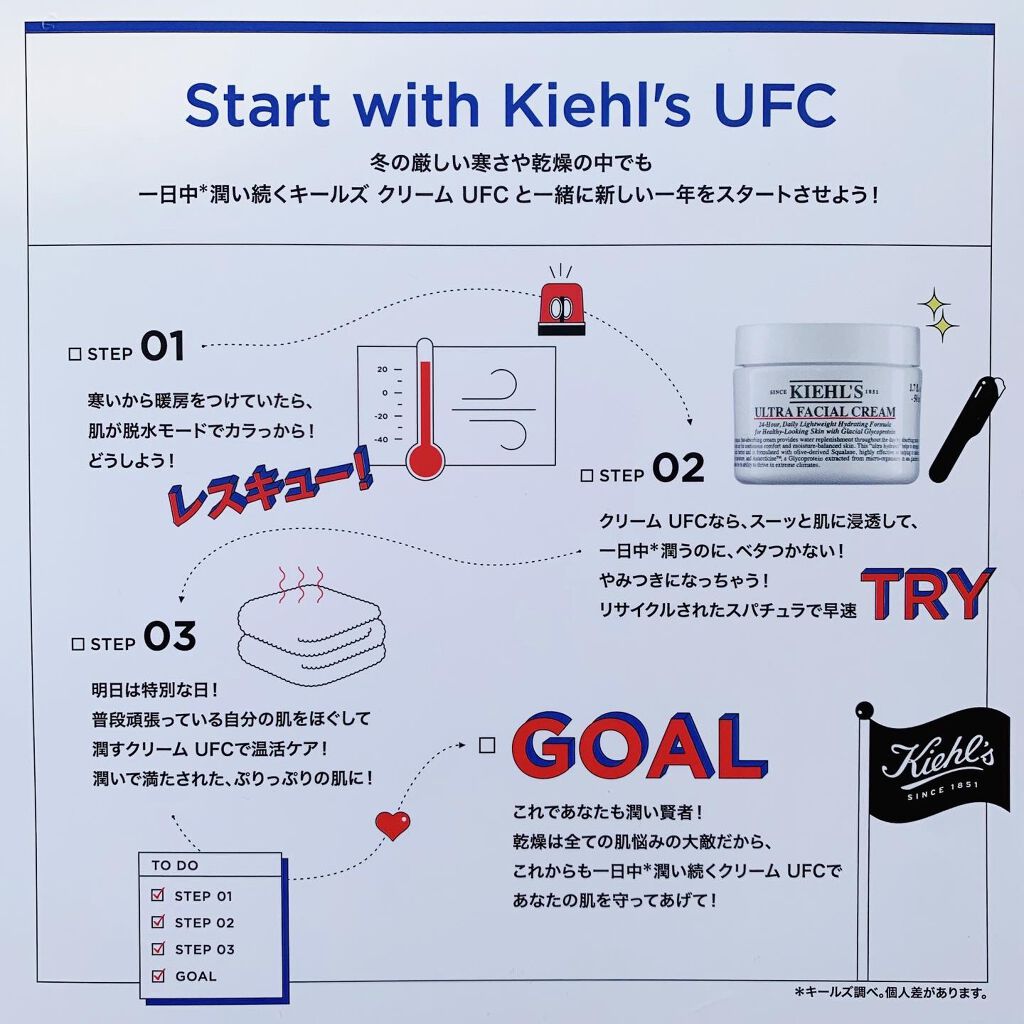 Start with Kiehl's UFC
冬の厳しい寒さや乾燥の中でも
一日中*潤い続くキールズ クリーム UFC と一緒に新しい一年をスタートさせよう!
STEP 01
寒いから暖房をつけていたら、
肌が脱水モードでカラっから!
どうしよう!
レスキュー!
20
0
-20
-40
SINCE KIEHL'S 1851
ULTRA FACIAL CREAM
24-Hour, Daily Lightweight Hydrating Formula
for Healthy-Looking Skin with Glacial Glycoprotein
STEP 02
クリーム UFCなら、スーッと肌に浸透して、
一日中*潤うのに、ベタつかない!
やみつきになっちゃう!
リサイクルされたスパチュラで早速 TRY
STEP 03
明日は特別な日!
普段頑張っている自分の肌をほぐして
潤すクリーム UFCで温活ケア!
潤いで満たされた、ぷりっぷりの肌に!
TO DO
STEP 01
STEP 02
STEP 03
GOAL
GOAL
これであなたも潤い賢者!
乾燥は全ての肌悩みの大敵だから、
これからも一日中*潤い続くクリーム UFCで
あなたの肌を守ってあげて!
Kiehl's
SINCE 1851
*キールズ調べ。個人差があります。